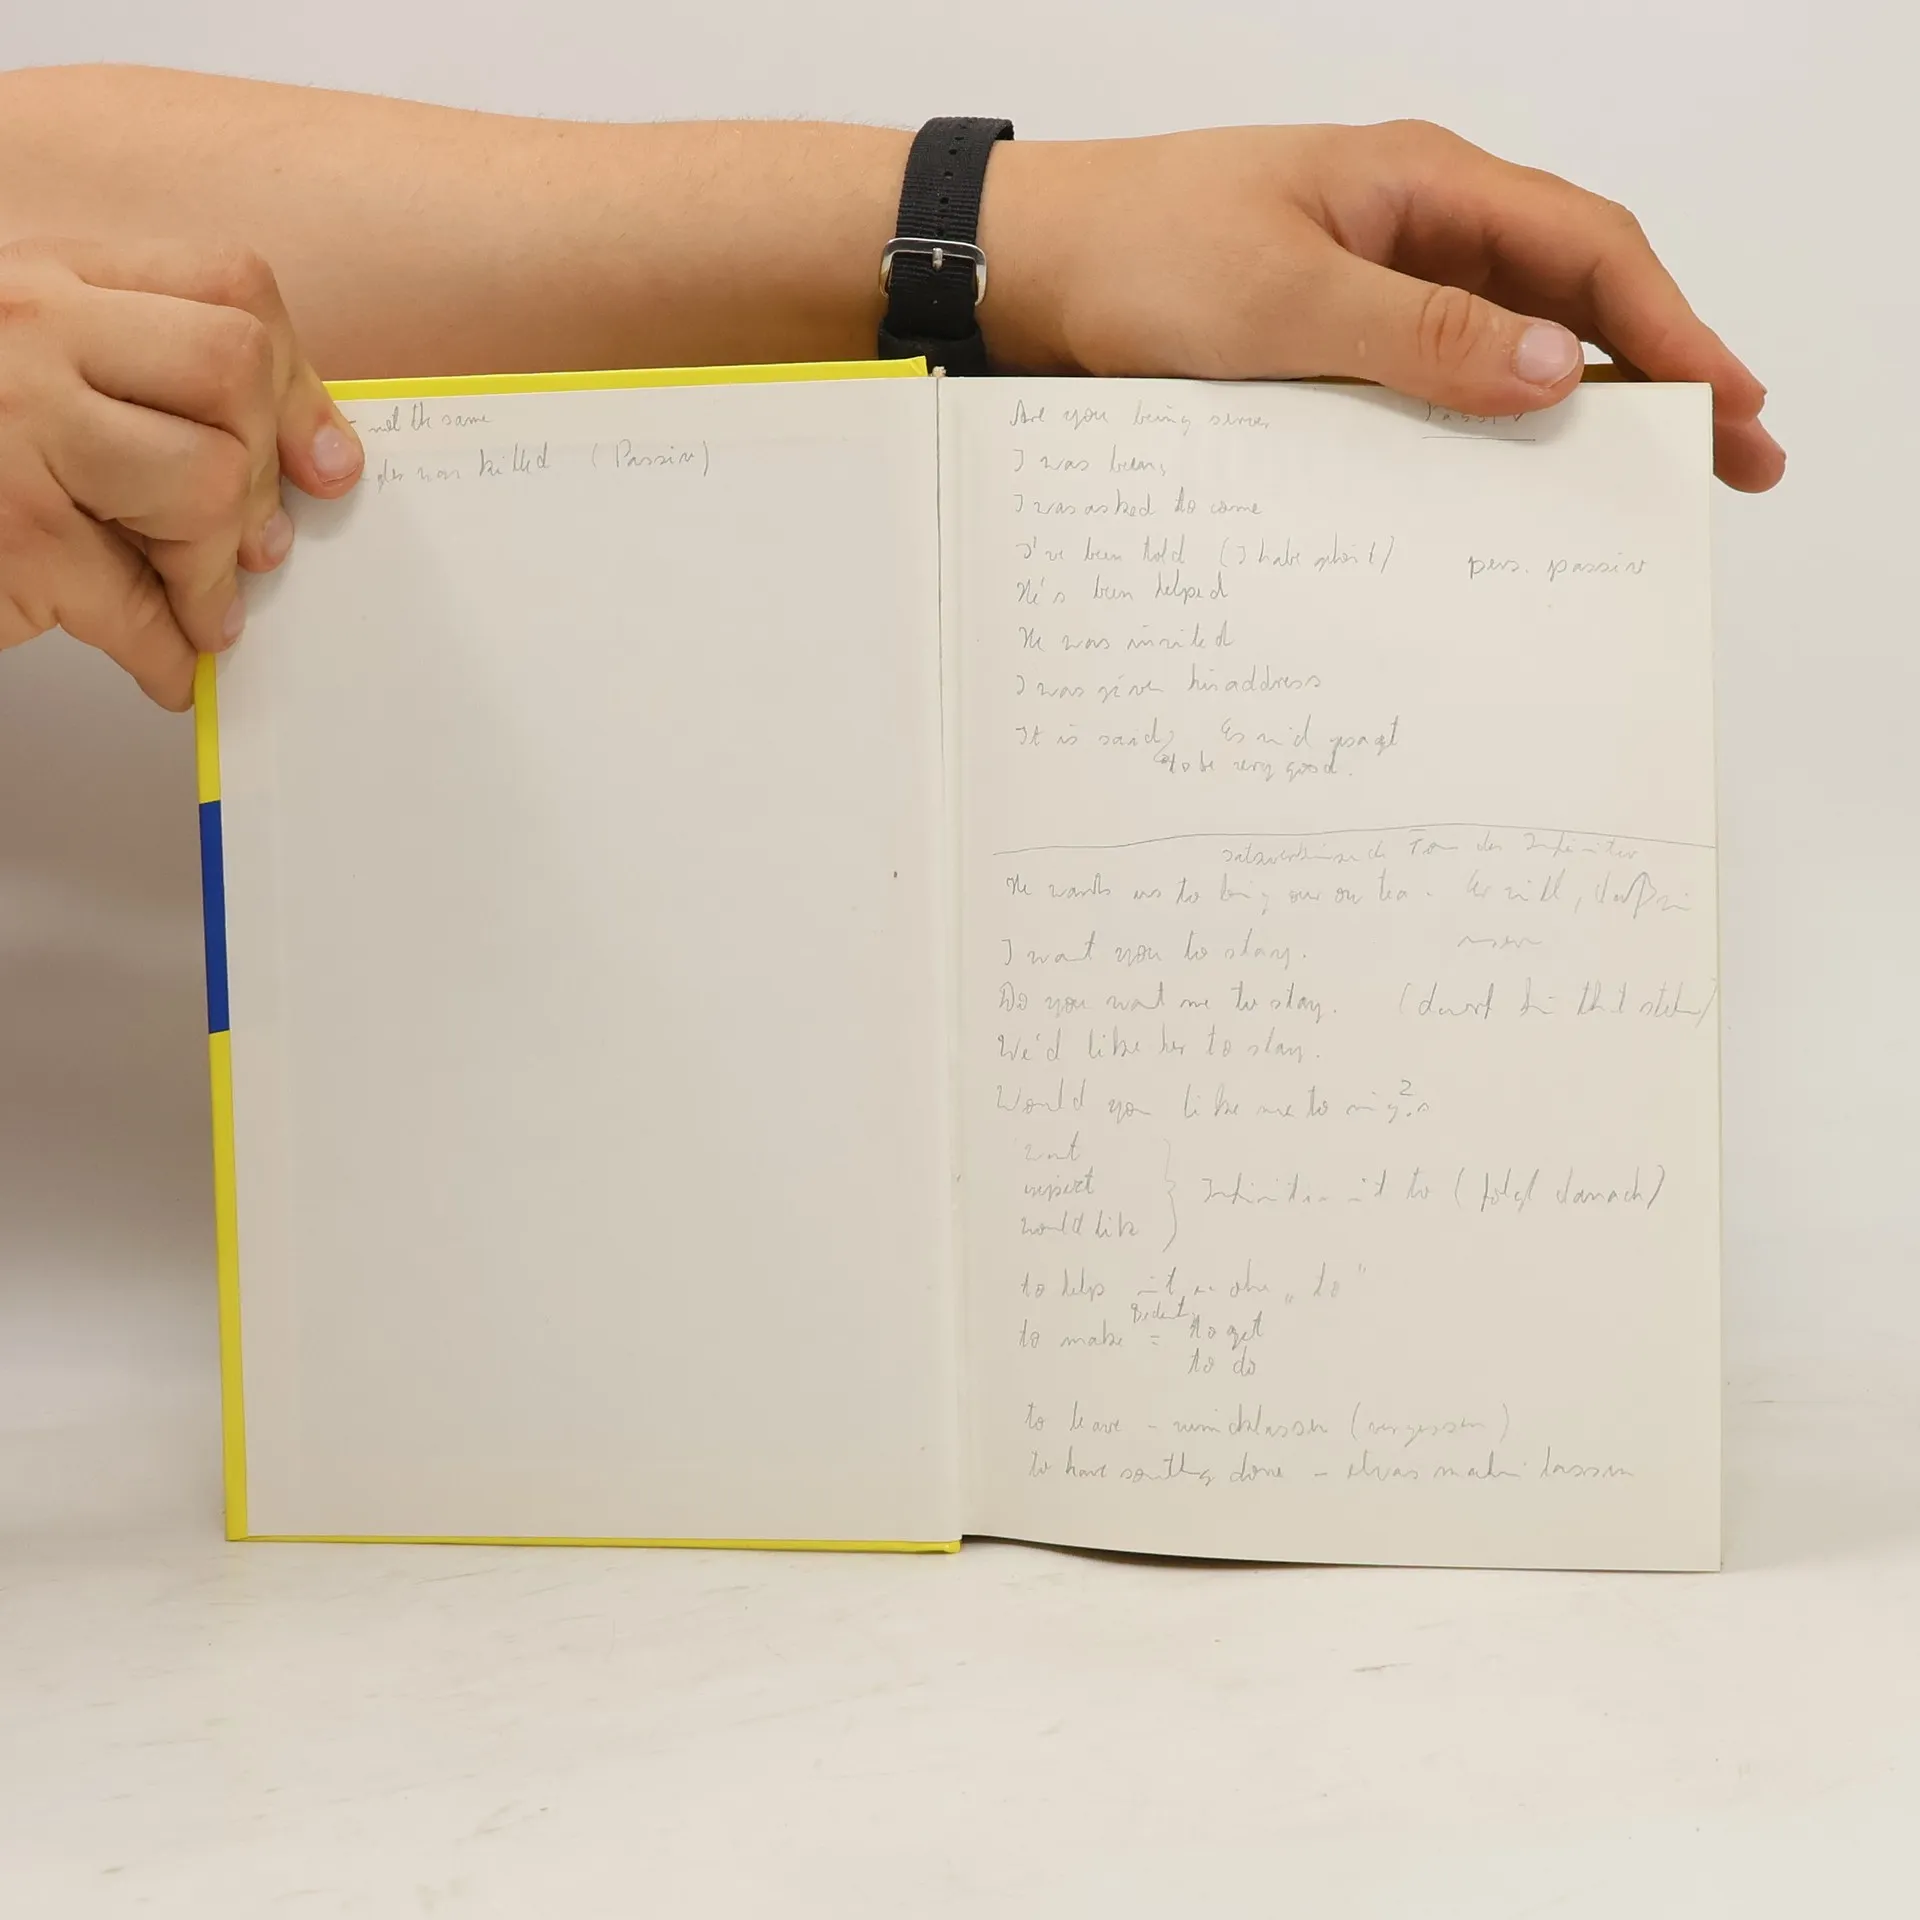 not the same
was killed (Passiv)
Are you being server
Passiv
I was
I was asked to come
I've been told (I habe gehört)
pers. passiv
He's been helped
He was invited
I was given his address
It is said; Es wird gesagt
to be very good.
satzverkürzende Form des Infinitiv
He wants us to bring our own tea. Er will, daß wir
I want you to stay.
Do you want me to stay.
We'd like her to stay.
Would you like me to
want
expect
would like
Infinitiv mit to (folgt danach)
to help mit ohne „to"
to make = to get
to do
to leave - zurücklassen (vergessen)
to have something done - etwas machen lassen